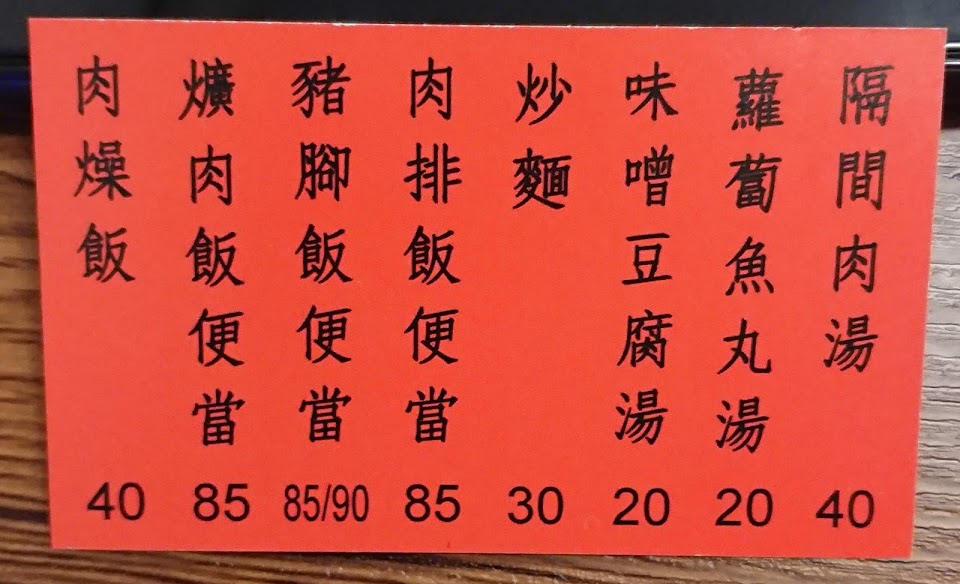 肉燥飯 40
爌肉飯便當 85
豬腳飯便當 85/90
肉排飯便當 85
炒麵 30
味噌豆腐湯 20
蘿蔔魚丸湯 20
隔間肉湯 40